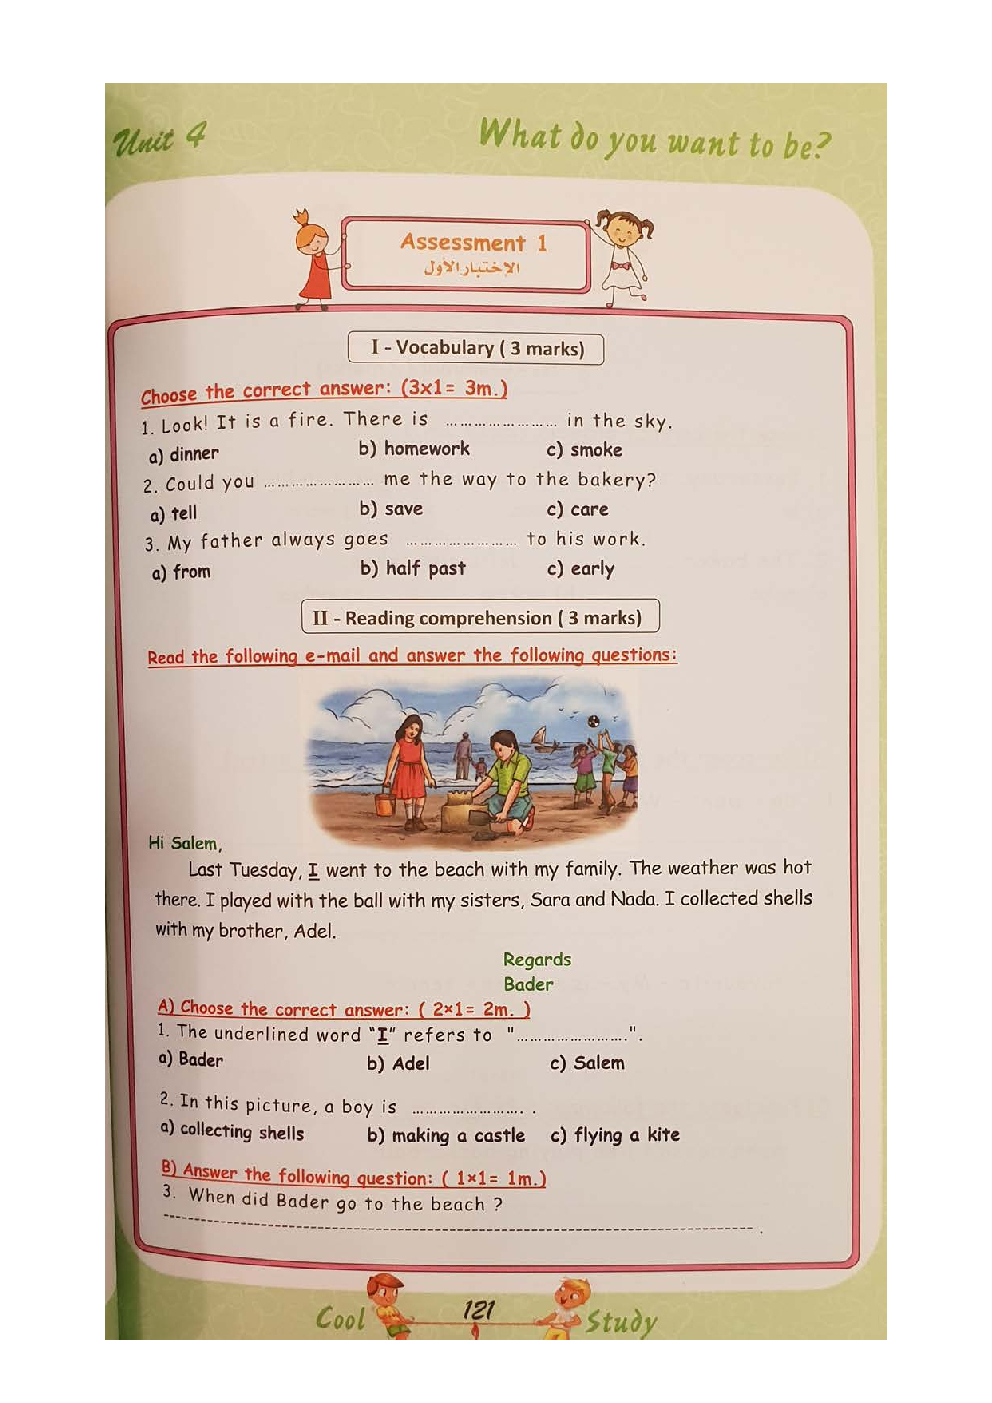 Unit 4
What do you want to be?
Assessment 1
الإختبار الأول
I - Vocabulary ( 3 marks)
Choose the correct answer: (3x1= 3m.)
1. Look! It is a fire. There is ........................ in the sky.
a) dinner b) homework c) smoke
2. Could you ........................ me the way to the bakery?
a) tell b) save c) care
3. My father always goes ........................ to his work.
a) from b) half past c) early
II - Reading comprehension ( 3 marks)
Read the following e-mail and answer the following questions:
Hi Salem,
Last Tuesday, I went to the beach with my family. The weather was hot
there. I played with the ball with my sisters, Sara and Nada. I collected shells
with my brother, Adel.
Regards
Bader
A) Choose the correct answer: ( 2x1= 2m. )
1. The underlined word "I" refers to "........................".
a) Bader b) Adel c) Salem
2. In this picture, a boy is ........................ .
a) collecting shells b) making a castle c) flying a kite
B) Answer the following question: ( 1x1= 1m.)
3. When did Bader go to the beach ?
------------------------------------------------------------ .
Cool 121 Study